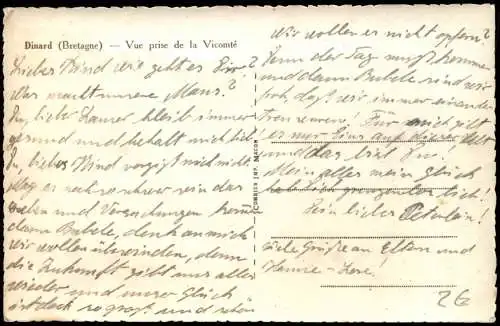 Dinard (Bretagne) — Vue prise de la Vicomté
Liebes Kind wie geht es Dir?
Was macht unsere Maus?
Du, lieber bleib immer
gesund und behalt mich lieb!
Du, liebes Kind vergiß mich nicht
mag es noch so schwer sein das
und Versuchungen
dann Bubele, denk an mich
wir wollen überwinden, denn
die Zukunft gibt uns alles
wieder und unser Glück
ist doch so groß und schön
Wir wollen es nicht opfern?
Denn der Tag muß kommen
und dann Bubele sind wir
froh, daß wir immer einander
treu waren! Für mich gibt
es nur Eins auf dieser Welt
und das bist Du!
Mein alles mein Glück
hab Dich grenzenlos lieb!
Dein lieber
viele Grüße an Eltern und
COMBIER IMP. MACON
26